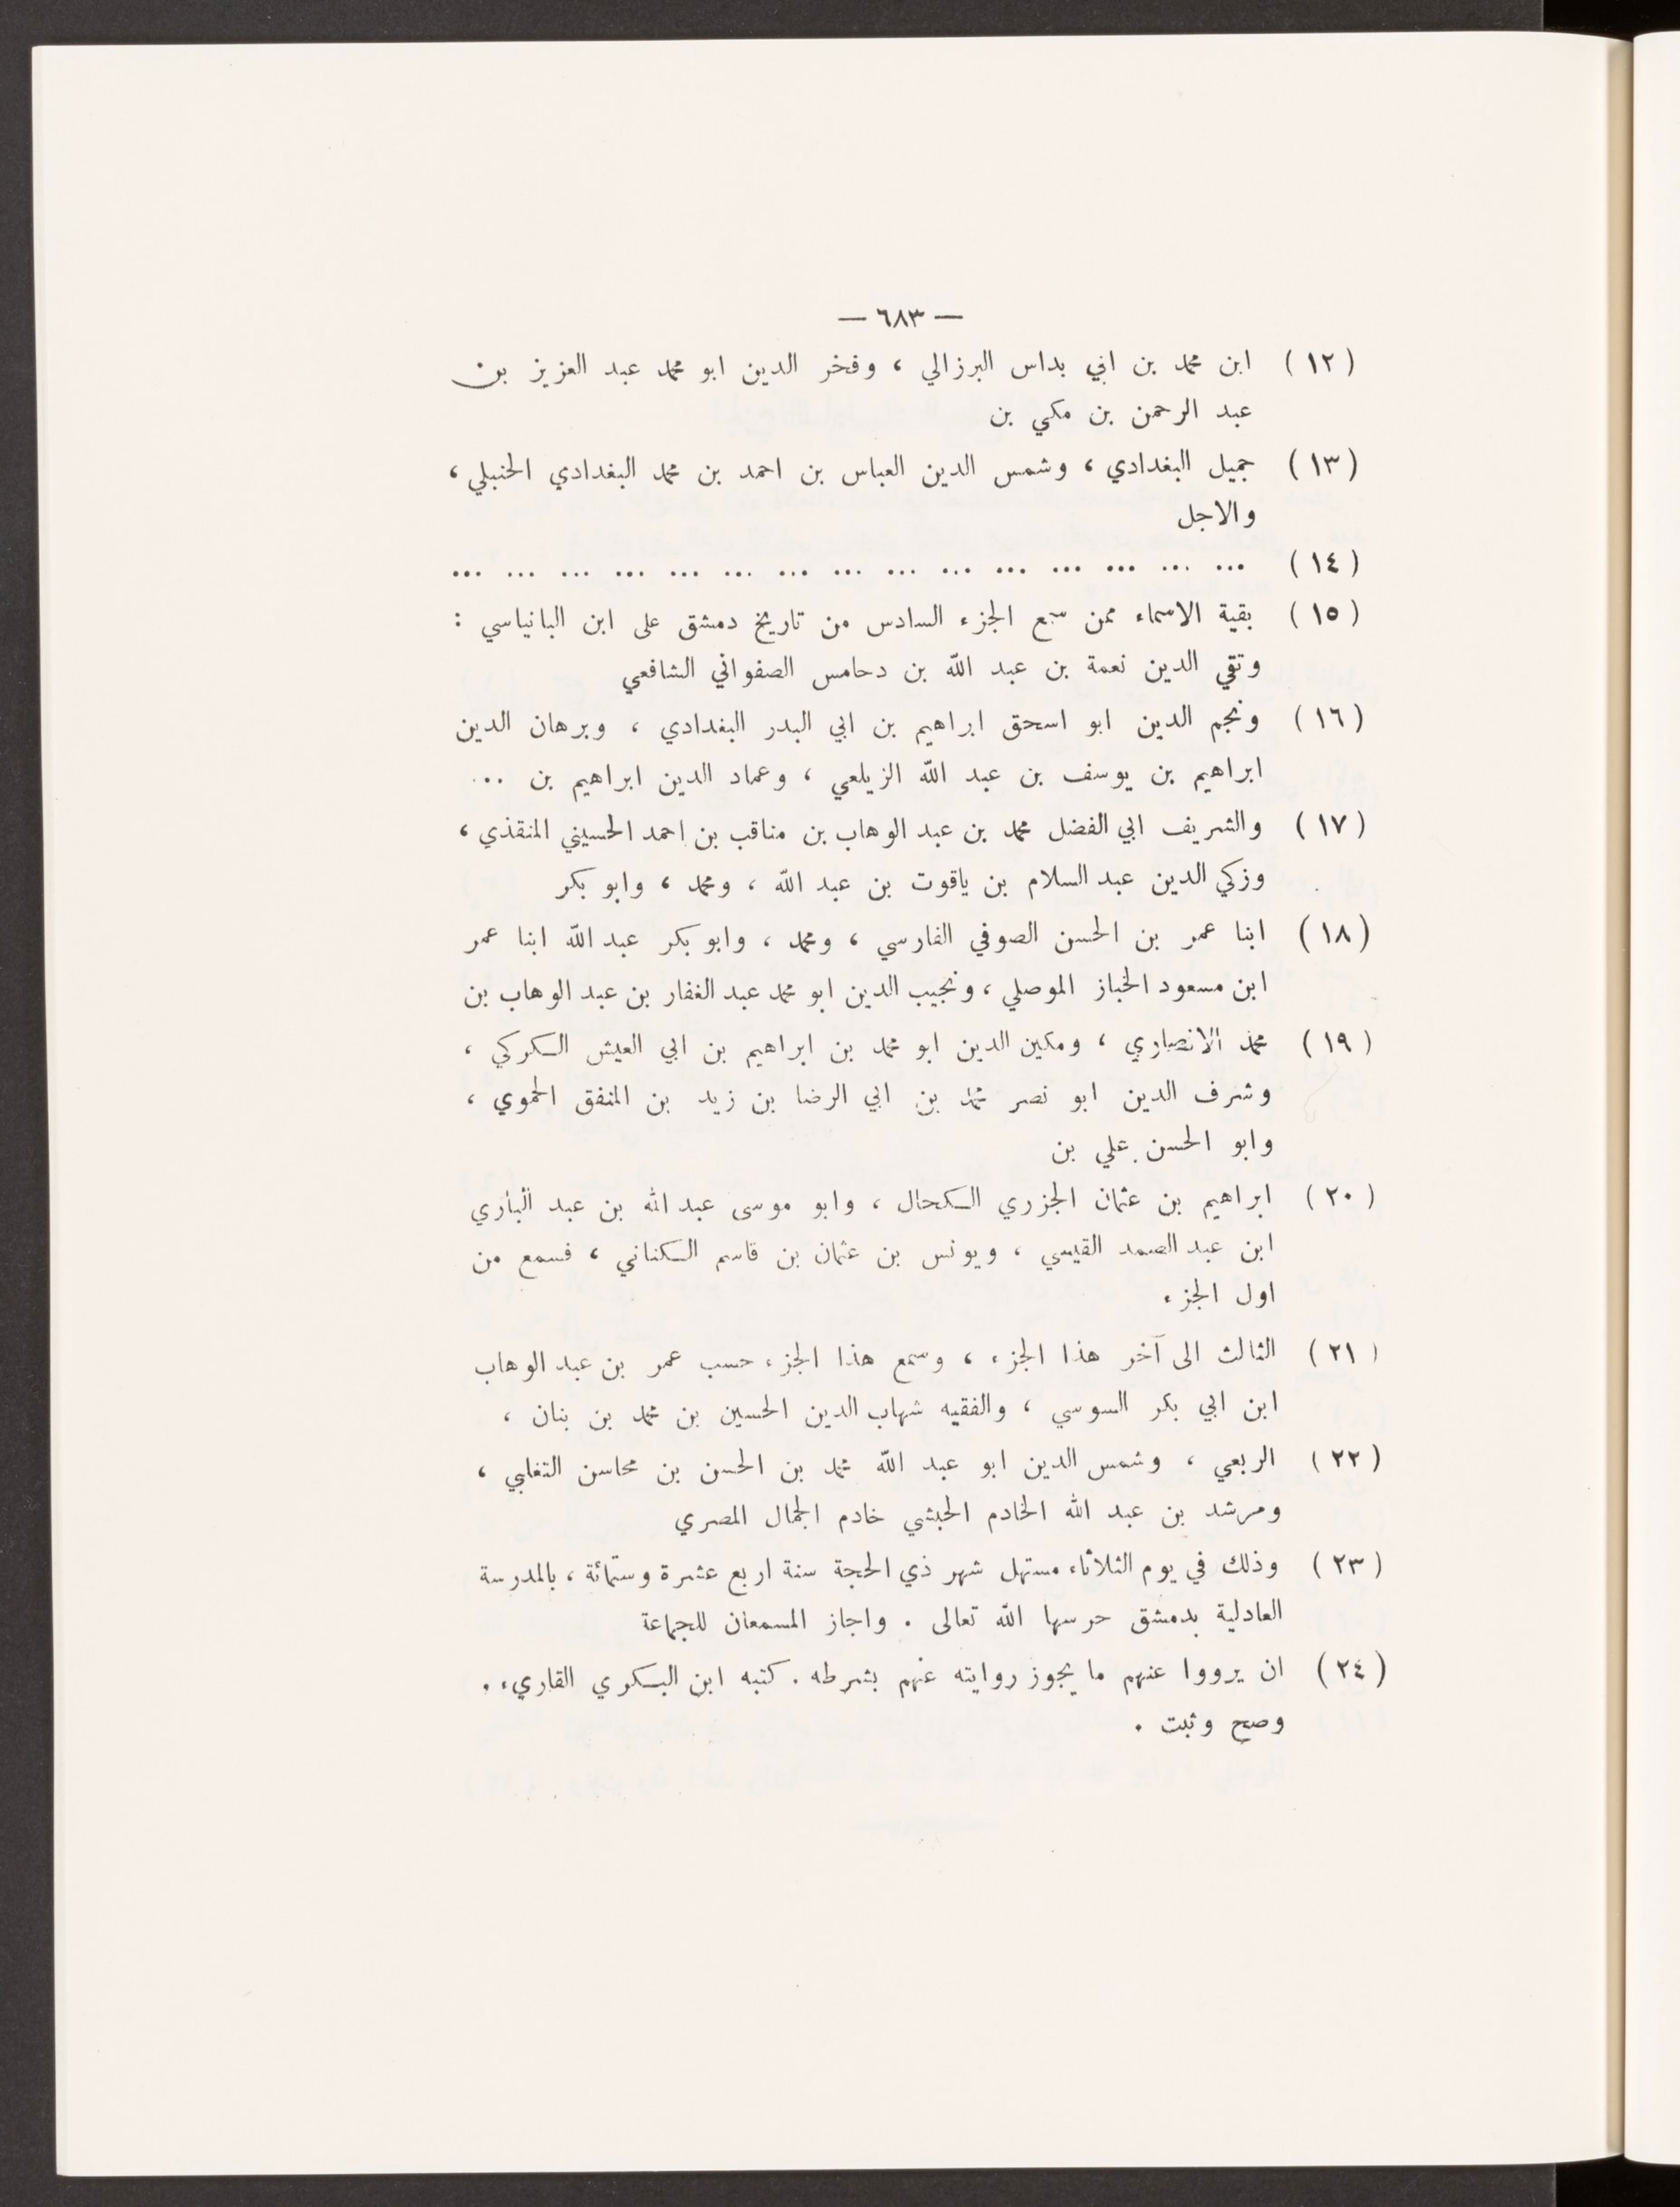 — ٦٨٣ —
(١٢) ابن محمد بن ابي بداس البرزالي ، وفخر الدين ابو محمد عبد العزيز بن
عبد الرحمن بن مكي بن
(١٣) جميل البغدادي ، وشمس الدين العباس بن احمد بن محمد البغدادي الحنبلي ،
والاجل
(١٤) ... ... ... ... ... ... ... ... ... ... ... ... ... ... ...
(١٥) بقية الاسماء ممن سمع الجزء السادس من تاريخ دمشق على ابن البانياسي :
وتقي الدين نعمة بن عبد الله بن دحامس الصفواني الشافعي
(١٦) ونجم الدين ابو اسحق ابراهيم بن ابي البدر البغدادي ، وبرهان الدين
ابراهيم بن يوسف بن عبد الله الزيلعي ، وعماد الدين ابراهيم بن ...
(١٧) والشريف ابي الفضل محمد بن عبد الوهاب بن مناقب بن احمد الحسيني المنقذي ،
وزكي الدين عبد السلام بن ياقوت بن عبد الله ، ومحمد ، وابو بكر
(١٨) ابنا عمر بن الحسن الصوفي الفارسي ، ومحمد ، وابو بكر عبد الله ابنا عمر
ابن مسعود الخباز الموصلي ، ونجيب الدين ابو محمد عبد الغفار بن عبد الوهاب بن
(١٩) محمد الانصاري ، ومكين الدين ابو محمد بن ابراهيم بن ابي العيش الكركي ،
وشرف الدين ابو نصر محمد بن ابي الرضا بن زيد بن المنفق الحموي ،
وابو الحسن علي بن
(٢٠) ابراهيم بن عثمان الجزري الكحال ، وابو موسى عبد الله بن عبد الباري
ابن عبد الصمد القيسي ، ويونس بن عثمان بن قاسم الكناني ، فسمع من
اول الجزء
(٢١) الثالث الى آخر هذا الجزء ، وسمع هذا الجزء حسب عمر بن عبد الوهاب
ابن ابي بكر السوسي ، والفقيه شهاب الدين الحسين بن محمد بن بنان ،
(٢٢) الربعي ، وشمس الدين ابو عبد الله محمد بن الحسن بن محاسن التغلبي ،
ومرشد بن عبد الله الخادم الحبشي خادم الجمال المصري
(٢٣) وذلك في يوم الثلاثاء مستهل شهر ذي الحجة سنة اربع عشرة وستمائة ، بالمدرسة
العادلية بدمشق حرسها الله تعالى . واجاز المسمعان للجماعة
(٢٤) ان يرووا عنهم ما يجوز روايته عنهم بشرطه . كتبه ابن البكري القاريء .
وصح وثبت .